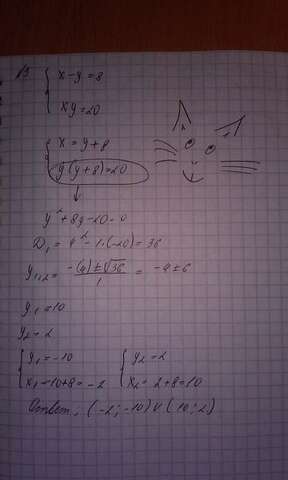 №3
{ x-y=8
{ xy=20
{ x=y+8
{ y(y+8)=20
y²+8y-20=0
D₁=4²-1·(-20)=36
y₁,₂=(-(4)±√36)/1=-4±6
y₁=10
y₂=2
{ y₁=-10 { y₂=2
{ x₁=-10+8=-2 { x₂=2+8=10
Ответ: (-2;-10)∪(10;2)